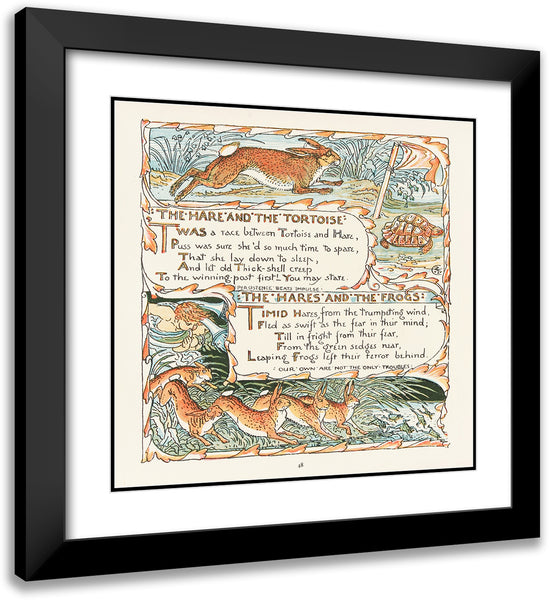 THE·HARE·AND·THE·TORTOISE:
TWAS a race between Tortoise and Hare,
Puss was sure she'd so much time to spare,
That she lay down to sleep,
And let old Thick-shell creep
To the winning post first! You may stare.
PERSISTENCE BEATS IMPULSE·
:THE·HARES·AND·THE·FROGS:
TIMID Hares, from the trumpeting wind,
Fled as swift as the fear in their mind;
Till in fright from their fear,
From the green sedges near,
Leaping Frogs left their terror behind.
:OUR·OWN·ARE·NOT·THE·ONLY·TROUBLES:
48